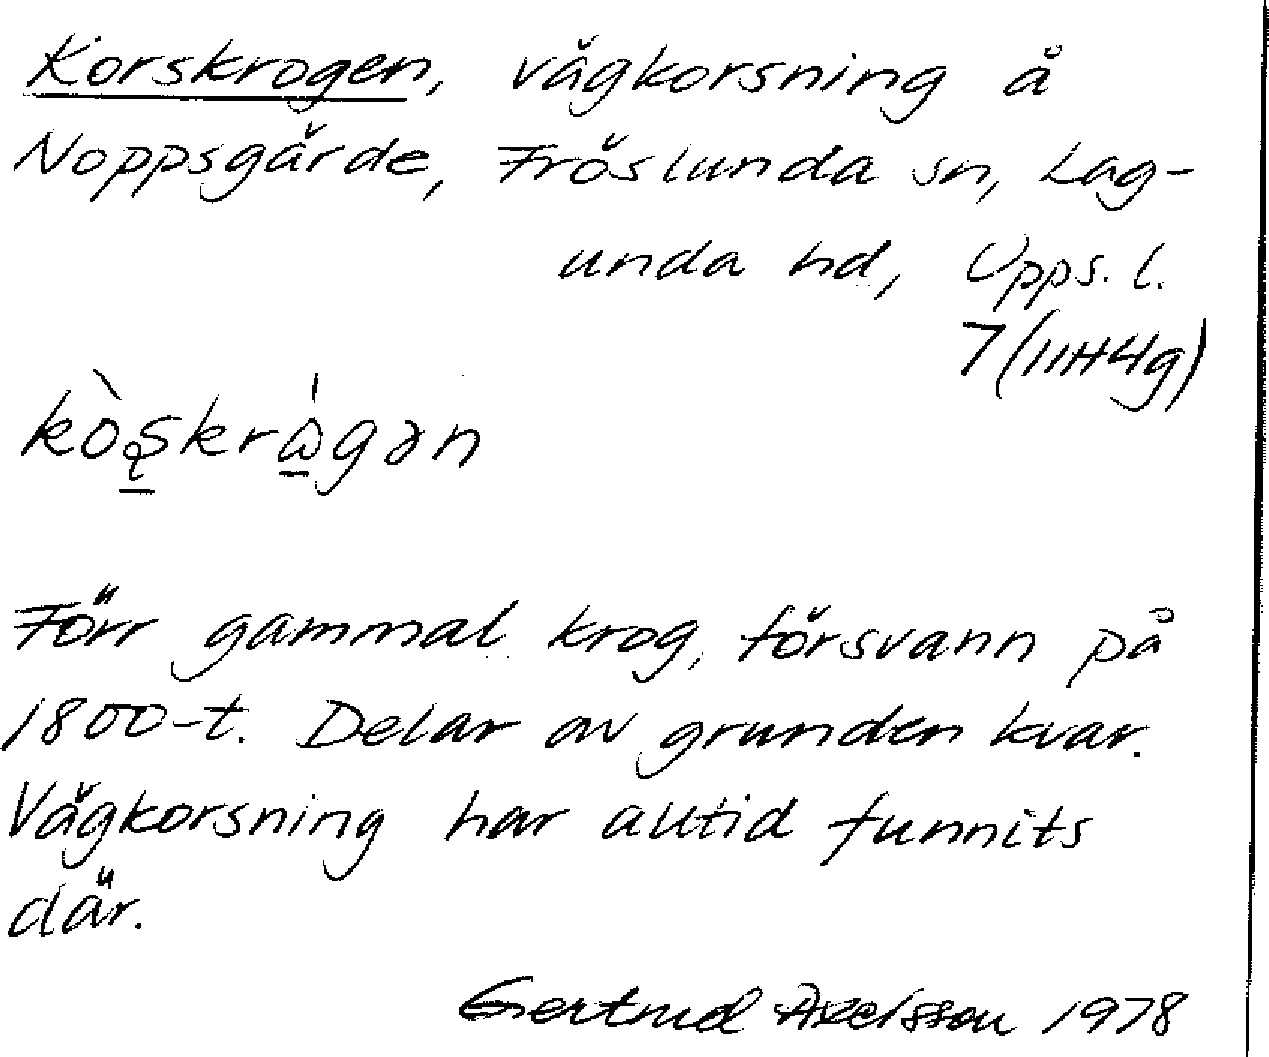 Korskrogen, vägkorsning å
Noppsgärde, Fröslunda sn, Lag-
unda hd, Upps. l.
7 (11H4g)
Förr gammal krog, försvann på
1800-t. Delar av grunden kvar.
Vägkorsning har alltid funnits
där.
Gertrud Axelsson 1978